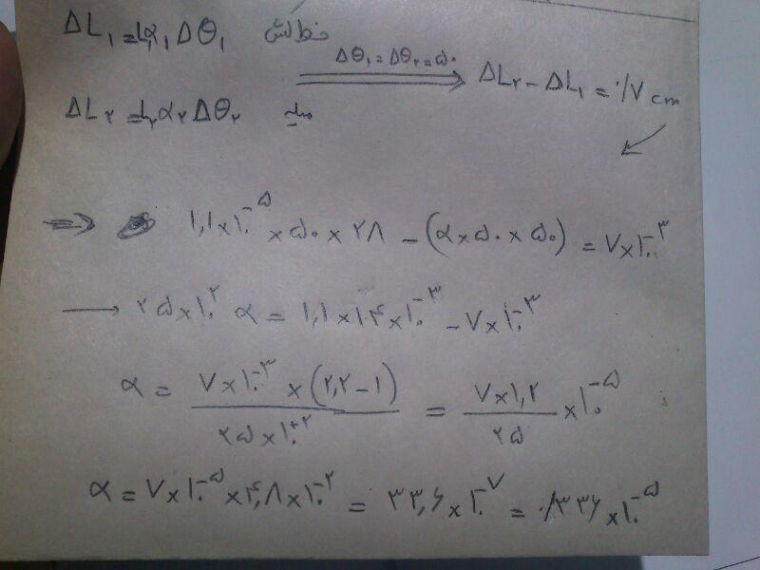 ΔL₁ = L₁α₁Δθ₁ خط‌کش
Δθ₁ = Δθ₂ = ۵۰
ΔL₂ − ΔL₁ = ۰/۷ cm
ΔL₂ = L₂α₂Δθ₂ میله
⇒ ۱,۱ × ۱۰⁻⁵ × ۵۰ × ۲۸ − (α × ۵۰ × ۵۰) = ۷ × ۱۰⁻³
→ ۲۵ × ۱۰² α = ۱,۱ × ۱۴ × ۱۰⁻³ − ۷ × ۱۰⁻³
α = ۷ × ۱۰⁻³ × (۲,۲ − ۱) / ۲۵ × ۱۰⁺² = ۷ × ۱,۲ / ۲۵ × ۱۰⁻⁵
α = ۷ × ۱۰⁻⁵ × ۴,۸ × ۱۰⁻² = ۳۳,۶ × ۱۰⁻⁷ = ۰/۳۳۶ × ۱۰⁻⁵